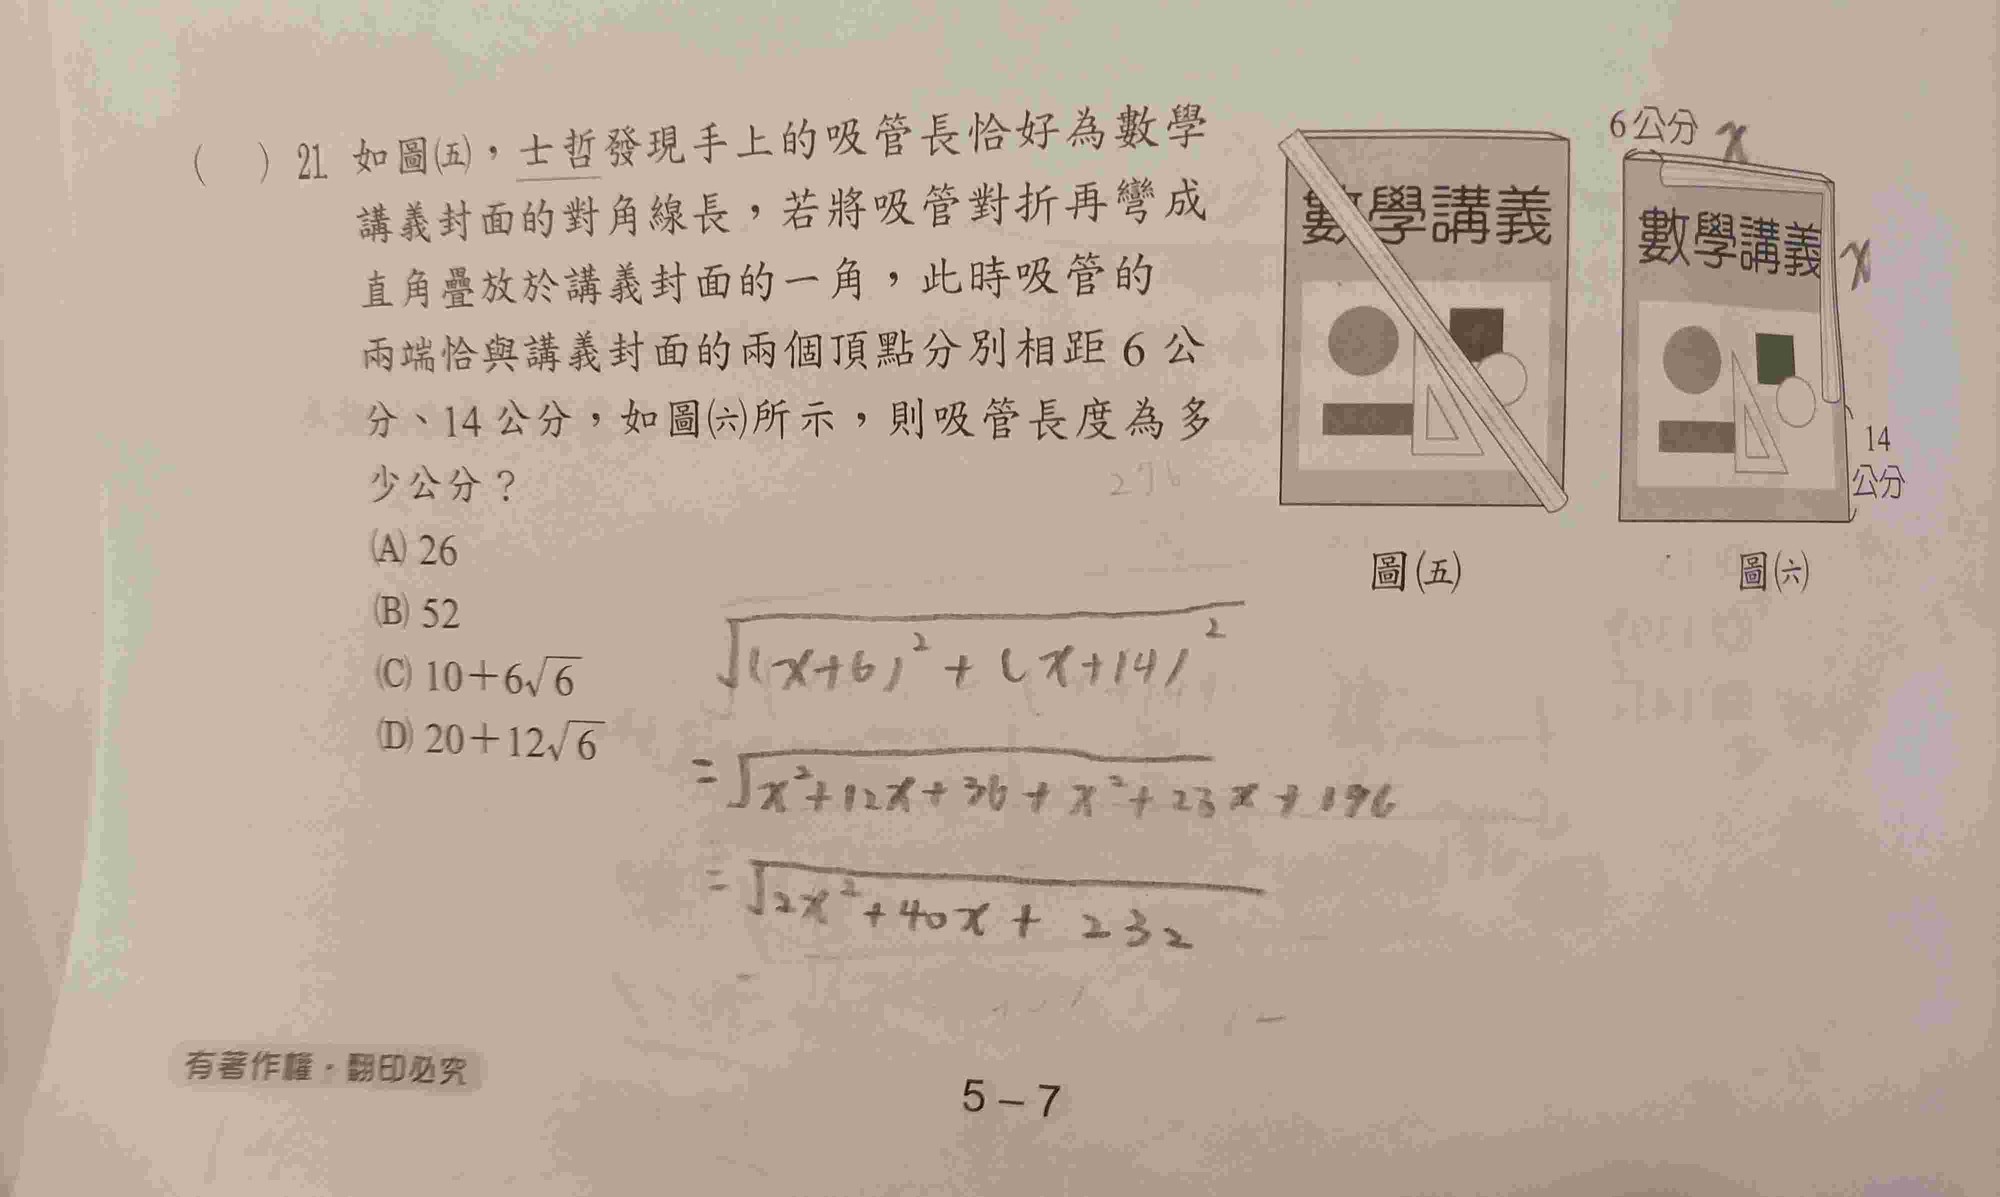 ( ) 21 如圖㈤，士哲發現手上的吸管長恰好為數學
講義封面的對角線長，若將吸管對折再彎成
直角疊放於講義封面的一角，此時吸管的
兩端恰與講義封面的兩個頂點分別相距 6 公
分、14 公分，如圖㈥所示，則吸管長度為多
少公分？
(A) 26
(B) 52
(C) 10＋6√6
(D) 20＋12√6
數學講義
圖㈤
6公分 x
數學講義
x
14
公分
圖㈥
296
√(x+6)²+(x+14)²
=√x²+12x+36+x²+28x+196
=√2x²+40x+232
有著作權・翻印必究
5－7